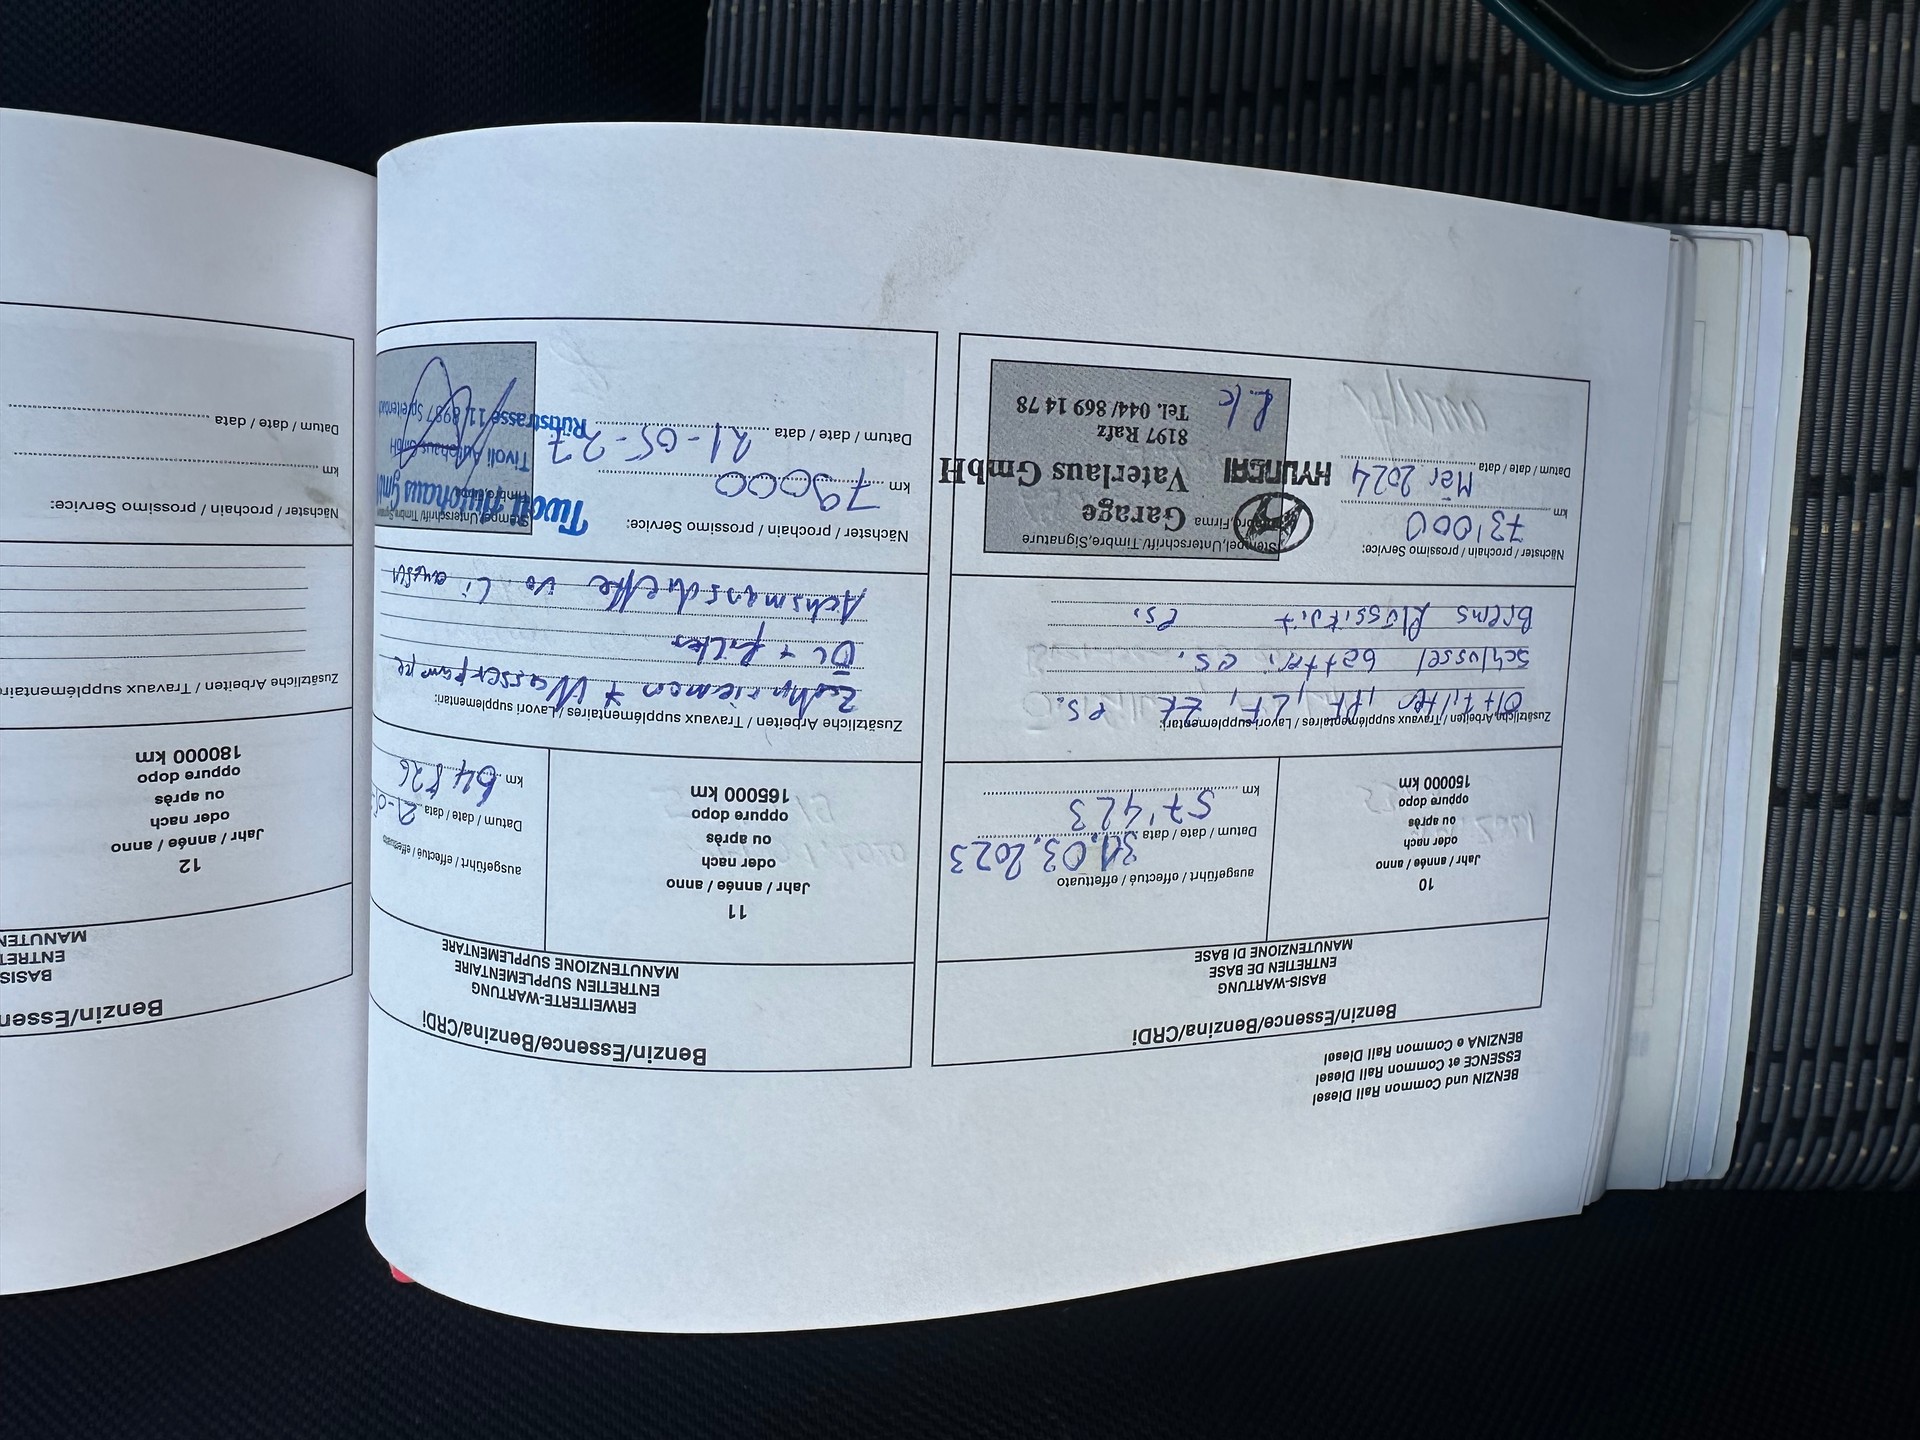 BENZIN und Common Rail Diesel
ESSENCE et Common Rail Diesel
BENZINA e Common Rail Diesel
Benzin/Essence/Benzina/CRDi
BASIS-WARTUNG
ENTRETIEN DE BASE
MANUTENZIONE DI BASE
10
Jahr / année / anno
oder nach
ou après
oppure dopo
150000 km
ausgeführt / effectué / effettuato
Datum / date / data 31.03.2023
km 57'423
Zusätzliche Arbeiten / Travaux supplémentaires / Lavori supplementari:
Öl+Filter, PF, LF, ZK es.
Schlüssel batteri es.
Brems flüssikeit es.
Nächster / prochain / prossimo Service:
km 73'000
Datum / date / data Mer 2024
Stempel,Unterschrift/Timbre,Signature
HYUNDAI
Garage
Vaterlaus GmbH
8197 Rafz
Tel. 044/ 869 14 78
Benzin/Essence/Benzina/CRDi
ERWEITERTE-WARTUNG
ENTRETIEN SUPPLEMENTAIRE
MANUTENZIONE SUPPLEMENTARE
11
Jahr / année / anno
oder nach
ou après
oppure dopo
165000 km
ausgeführt / effectué / effettuato
Datum / date / data 21-05
km 64826
Zusätzliche Arbeiten / Travaux supplémentaires / Lavori supplementari:
Zahnriemen + Wasserpumpe
Öl + filter
Achsmanschette vo. Li aussen
Nächster / prochain / prossimo Service:
km 79000
Datum / date / data 21-05-27
Stempel,Unterschrift/Timbre,Signature
Tivoli Autohaus GmbH
Tivoli Autohaus GmbH
Rütistrasse 11, 8957 Spreitenbach
Benzin/Essen
BASIS
ENTRET
MANUTEN
12
Jahr / année / anno
oder nach
ou après
oppure dopo
180000 km
Zusätzliche Arbeiten / Travaux supplémentaire
Nächster / prochain / prossimo Service:
km
Datum / date / data